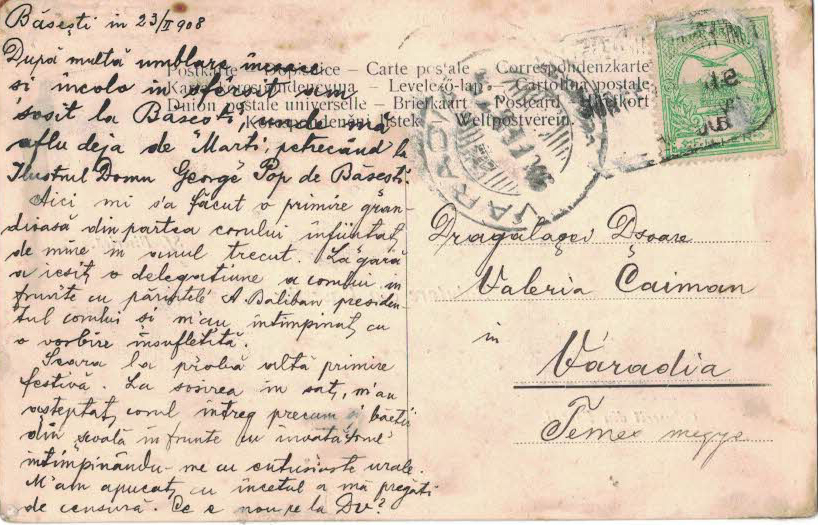 Băsești in 23/II 908
După multă umblare încoace
si încolo in sfârsit am
sosit la Băsesti, unde mă
aflu deja de Marti, petrecând la
Ilustrul Domn George Pop de Băsesti.
Aici mi s'a făcut o primire gran-
dioasă din partea corului înfiintat
de mine in anul trecut. La gară
a iesit o delegatiune a corului in
frunte cu părintele A. Băliban presiden-
tul corului si m'au întimpinat cu
o vorbire însufletită.
Seara la probă altă primire
festivă. La sosirea in sat, m'au
asteptat corul întreg precum si băetii
din scoală in frunte cu învătătorul
întimpinându-me cu entusiaste urale.
M'am apucat cu încetul a mă pregăti
de censură. Ce e nou pe la Dv?
Postkarte – Dopisnice – Carte postale – Correspondenzkarte
– Levelező-lap – Cartolina postale
Union postale universelle – Briefkaart – Postcard –
listek Weltpostverein
VÁRADIA
Drăgălașei Dșoare
Valeria Caiman
in
Váradia
Temes megye